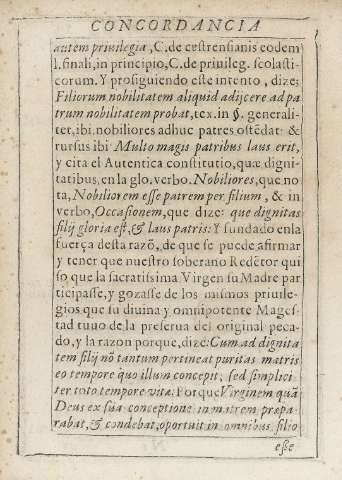 CONCORDANCIA
autem priuilegia, C. de castrensianis eodem
l. finali, in principio, C. de priuileg. scolasti-
corum. Y prosiguiendo este intento, dize:
Filiorum nobilitatem aliquid adijcere ad pa
trum nobilitatem probat, tex. in §. generali-
ter, ibi. nobiliores adhuc patres ostēdat: &
rursus ibi Multo magis patribus laus erit,
y cita el Autentica constitutio, quæ digni-
tatibus, en la glo. verbo. Nobiliores, que no
ta, Nobiliorem esse patrem per filium, & in
verbo, Occasionem, que dize: que dignitas
filij gloria est, & laus patris: Y fundado enla
fuerça desta razō, de que se puede afirmar
y tener que nuestro soberano Redētor qui
so que la sacratissima Virgen su Madre par
ticipasse, y gozasse de los mismos priuile-
gios que su diuina y omnipotente Mages-
tad tuuo de la preserua del original peca-
do, y la razon porque, dize: Cum ad dignita
tem filij nō tantum pertineat puritas matris
eo tempore quo illum concepit, sed simplici
ter toto tempore vitæ: Porque Virginem quā
Deus ex sua conceptione in matrem præpa-
rabat, & condebat, oportuit in omnibus filio
esse